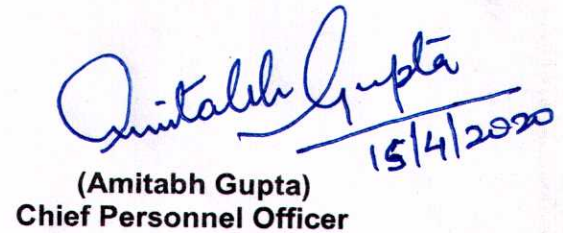 Amitabh Gupta
15/4/2020
(Amitabh Gupta)
Chief Personnel Officer